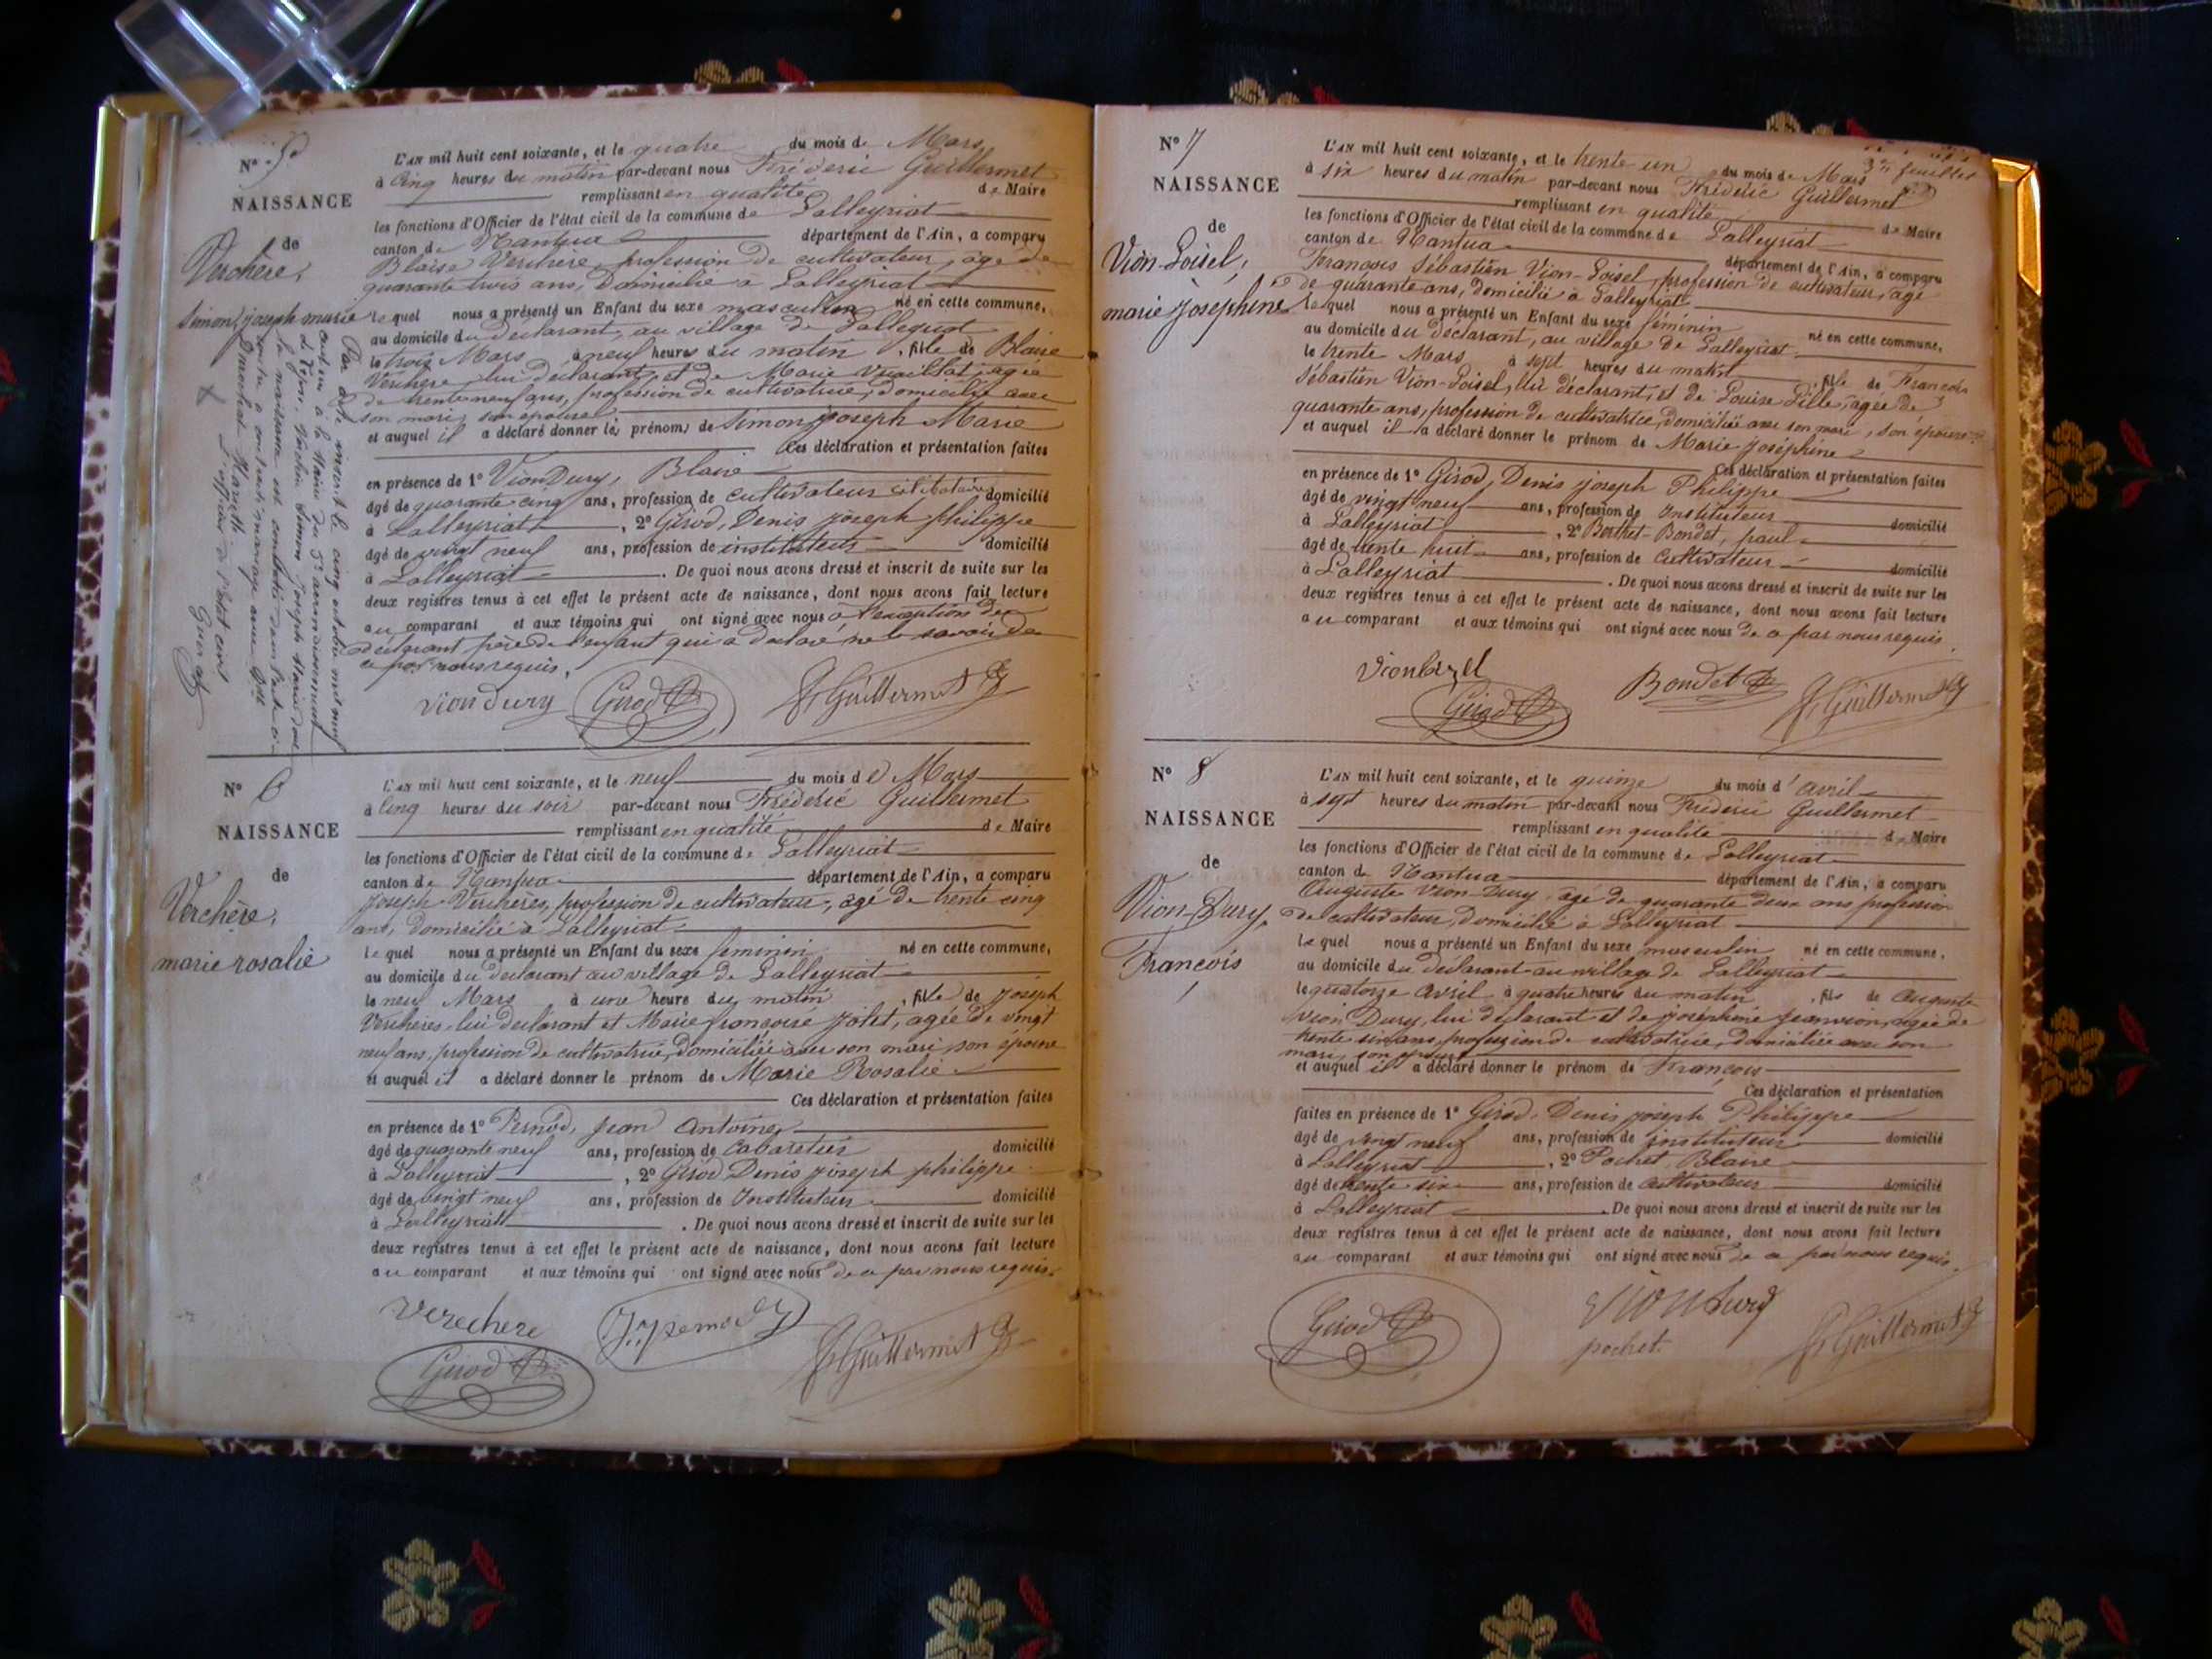 N° 5
NAISSANCE
de
Verchère,
Simon, joseph marie
L'AN mil huit cent soixante, et le quatre du mois de Mars
à cinq heures du matin par-devant nous Frédéric Guillermet
remplissant en qualité de Maire
les fonctions d'Officier de l'état civil de la commune de Lalleyriat
canton de Nantua département de l'Ain, a comparu
Blaise Verchere, profession de cultivateur, agé de
quarante trois ans, Domicilié à Lalleyriat
lequel nous a présenté un Enfant du sexe masculin né en cette commune,
au domicile du déclarant, au village de Lalleyriat
le trois Mars à neuf heures du matin, fils de Blaise
Verchere, lui déclarant, et de Marie agée
de trente neuf ans, profession de cultivatrice, domiciliée avec
son mari, son épouse
et auquel il a déclaré donner les prénoms de Simon Joseph Marie
Ces déclaration et présentation faites
en présence de 1° Vion Dury, Blaise
âgé de quarante cinq ans, profession de cultivateur célibataire domicilié
à Lalleyriat, 2° Girod, Denis joseph philippe
âgé de vingt neuf ans, profession de instituteur domicilié
à Lalleyriat. De quoi nous avons dressé et inscrit de suite sur les
deux registres tenus à cet effet le présent acte de naissance, dont nous avons fait lecture
au comparant et aux témoins qui ont signé avec nous à l'exception du
déclarant père de l'enfant qui a déclaré ne le savoir de
ce par nous requis.
Vion dury Girod F. Guillermet
Par acte inscrit le cinq octobre mil neuf
à la Mairie du 5e arrondissement
de Lyon, Verchère Simon Joseph Marie dont
la naissance est constatée dans l'acte ci-
contre a contracté mariage avec
Mariette
L'officier de l'état civil
N° 6
NAISSANCE
de
Verchère,
marie rosalie
L'AN mil huit cent soixante, et le neuf du mois de Mars
à cinq heures du soir par-devant nous Fréderic Guillermet
remplissant en qualité de Maire
les fonctions d'Officier de l'état civil de la commune de Lalleyriat
canton de Nantua département de l'Ain, a comparu
Joseph Verchères, profession de cultivateur, agé de trente cinq
ans, domicilié à Lalleyriat
lequel nous a présenté un Enfant du sexe feminin né en cette commune,
au domicile du declarant au village de Lalleyriat
le neuf Mars à une heure du matin, fille de joseph
Verchères, lui déclarant et Marie françoise Jolet, agée de vingt
neuf ans, profession de cultivatrice, domiciliée avec son mari, son épouse
et auquel il a déclaré donner le prénom de Marie Rosalie
Ces déclaration et présentation faites
en présence de 1° Pernod, Jean Antoine
âgé de quarante neuf ans, profession de Cabaretier domicilié
à Lalleyriat, 2° Girod Denis joseph philippe
âgé de vingt neuf ans, profession de Instituteur domicilié
à Lalleyriat. De quoi nous avons dressé et inscrit de suite sur les
deux registres tenus à cet effet le présent acte de naissance, dont nous avons fait lecture
au comparant et aux témoins qui ont signé avec nous de ce par nous requis.
Verechere
Girod F. Guillermet
3me feuillet
N° 7
NAISSANCE
de
Vion-Loisel,
marie josephine
L'AN mil huit cent soixante, et le trente un du mois de Mars
à six heures du matin par-devant nous Fréderic Guillermet
remplissant en qualité de Maire
les fonctions d'Officier de l'état civil de la commune de Lalleyriat
canton de Nantua département de l'Ain, a comparu
François Sébastien Vion-Loisel, profession de cultivateur, agé
de quarante ans, domicilié à Lalleyriat
lequel nous a présenté un Enfant du sexe féminin né en cette commune,
au domicile du déclarant, au village de Lalleyriat
le trente Mars à sept heures du matin, fille de François
Sébastien Vion-Loisel, lui déclarant, et de Louise Lille, agée de
quarante ans, profession de cultivatrice, domiciliée avec son mari, son épouse
et auquel il a déclaré donner le prénom de Marie Joséphine
Ces déclaration et présentation faites
en présence de 1° Girod, Denis joseph Philippe
âgé de vingt neuf ans, profession de Instituteur domicilié
à Lalleyriat, 2° Berthet-Bondet, paul
âgé de trente huit ans, profession de Cultivateur domicilié
à Lalleyriat. De quoi nous avons dressé et inscrit de suite sur les
deux registres tenus à cet effet le présent acte de naissance, dont nous avons fait lecture
au comparant et aux témoins qui ont signé avec nous de ce par nous requis.
Bondet
Girod F. Guillermet
N° 8
NAISSANCE
de
Vion-Dury,
François
L'AN mil huit cent soixante, et le quinze du mois d'avril
à sept heures du matin par-devant nous Fréderic Guillermet
remplissant en qualité de Maire
les fonctions d'Officier de l'état civil de la commune de Lalleyriat
canton de Nantua département de l'Ain, a comparu
Auguste Vion-Dury, agé de quarante deux ans profession
de cultivateur, domicilié à Lalleyriat
lequel nous a présenté un Enfant du sexe masculin né en cette commune,
au domicile du déclarant au village de Lalleyriat
le quatorze avril à quatre heures du matin, fils de auguste
Vion Dury, lui déclarant et de joséphine jeanvion, agée de
trente six ans, profession de cultivatrice, domiciliée avec son
mari, son épouse
et auquel il a déclaré donner le prénom de François
Ces déclaration et présentation
faites en présence de 1° Girod, Denis joseph Philippe
âgé de vingt neuf ans, profession de instituteur domicilié
à Lalleyriat, 2° Pochet, Blaise
âgé de trente six ans, profession de Cultivateur domicilié
à Lalleyriat. De quoi nous avons dressé et inscrit de suite sur les
deux registres tenus à cet effet le présent acte de naissance, dont nous avons fait lecture
au comparant et aux témoins qui ont signé avec nous de ce par nous requis.
Girod vion dury
pochet F. Guillermet